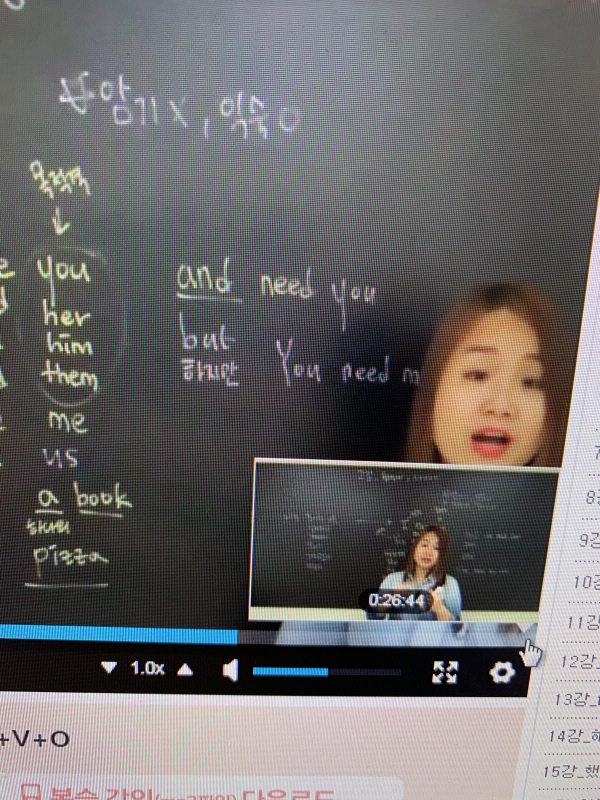 암기X, 익숙O
목적격
↓
you
her
him
them
me
us
a book
하나의
pizza
and need you
but
하지만 You need m
0:26:44
1.0x
+V+O
복습 강의 다운로드
9강
10강
11강
12강_
13강_
14강_해
15강_했